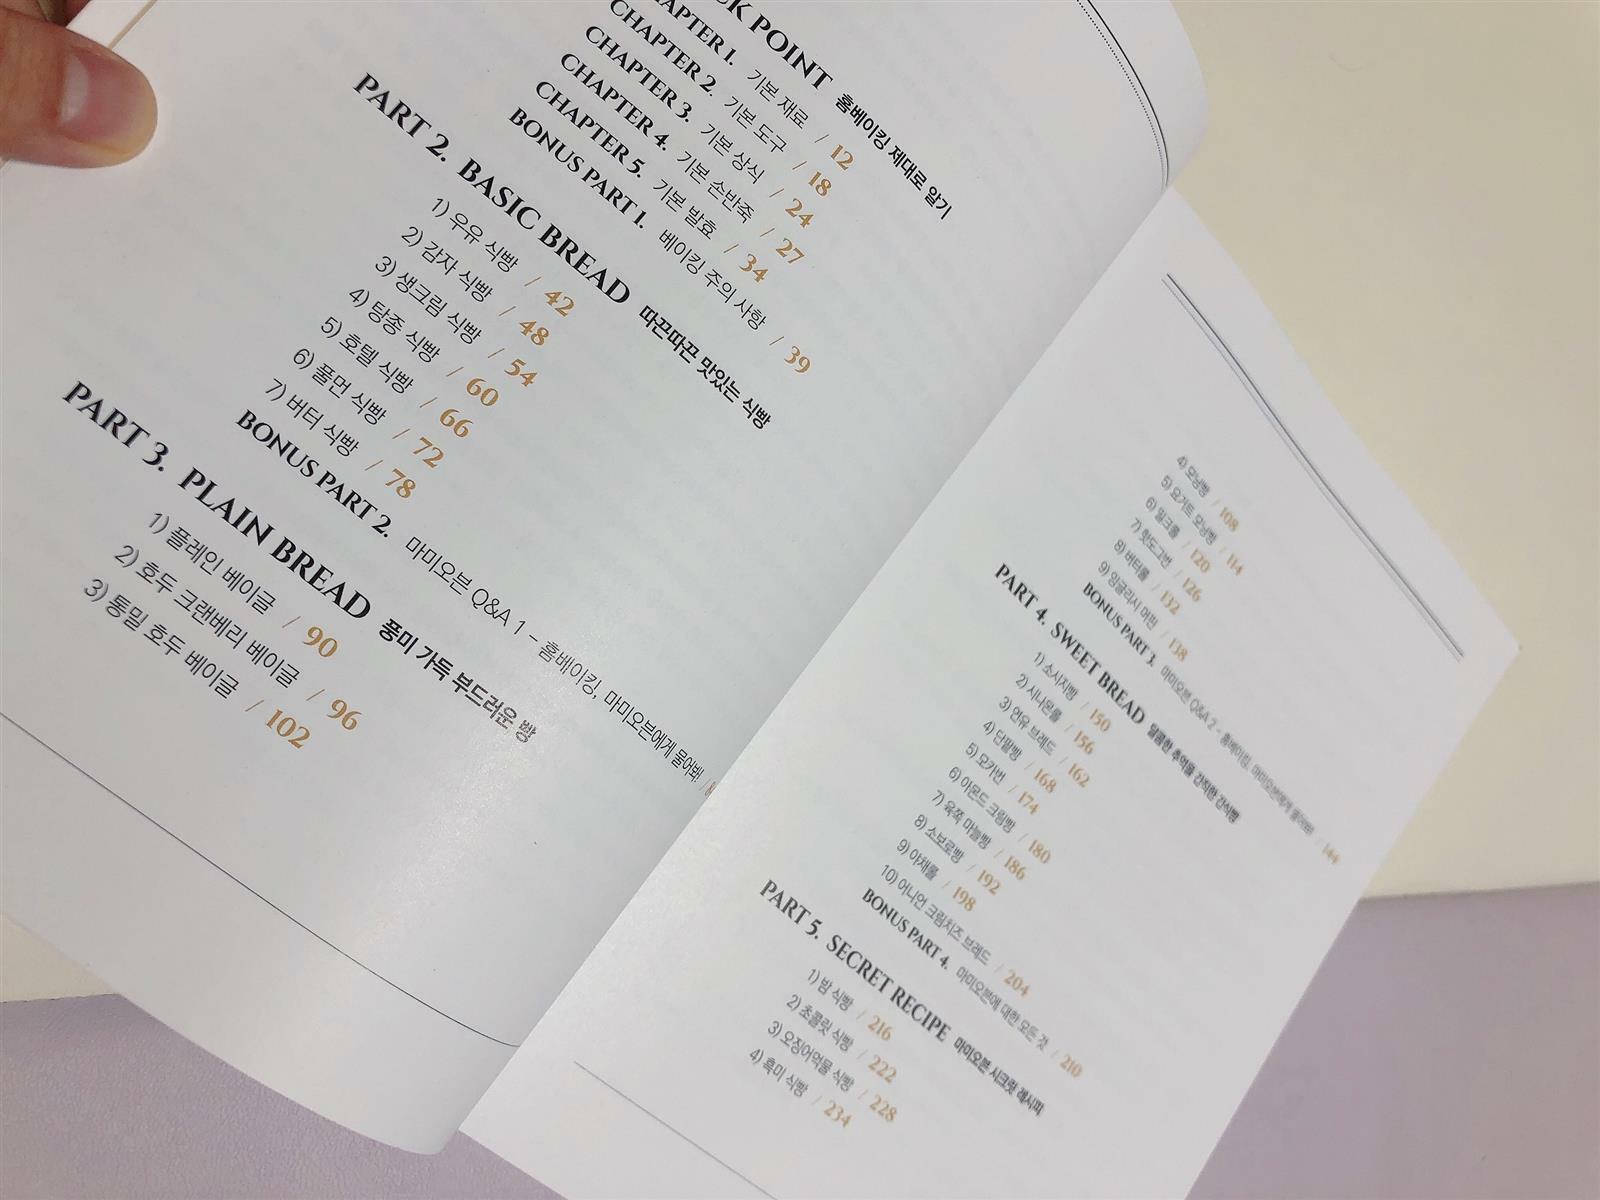 CK POINT 홈베이킹 제대로 알기
CHAPTER 1. 기본 재료 / 12
CHAPTER 2. 기본 도구 / 18
CHAPTER 3. 기본 상식 / 24
CHAPTER 4. 기본 손반죽 / 27
CHAPTER 5. 기본 발효 / 34
BONUS PART 1. 베이킹 주의 사항 / 39
PART 2. BASIC BREAD 따끈따끈 맛있는 식빵
1) 우유 식빵 / 42
2) 감자 식빵 / 48
3) 생크림 식빵 / 54
4) 탕종 식빵 / 60
5) 호텔 식빵 / 66
6) 풀먼 식빵 / 72
7) 버터 식빵 / 78
BONUS PART 2. 마미오븐 Q&A 1 - 홈베이킹, 마미오븐에게 물어봐! /
PART 3. PLAIN BREAD 풍미 가득 부드러운 빵
1) 플레인 베이글 / 90
2) 호두 크랜베리 베이글 / 96
3) 통밀 호두 베이글 / 102
4) 모닝빵 / 108
5) 요거트 모닝빵 / 114
6) 밀크롤 / 120
7) 핫도그번 / 126
8) 버터롤 / 132
9) 잉글리시 머핀 / 138
BONUS PART 3. 마미오븐 Q&A 2 - 홈베이킹, 마미오븐에게 물어봐! / 144
PART 4. SWEET BREAD 달콤한 추억을 간직한 간식빵
1) 소시지빵 / 150
2) 시나몬롤 / 156
3) 연유 브레드 / 162
4) 단팥빵 / 168
5) 모카번 / 174
6) 아몬드 크림빵 / 180
7) 육쪽 마늘빵 / 186
8) 소보로빵 / 192
9) 야채롤 / 198
10) 어니언 크림치즈 브레드 / 204
BONUS PART 4. 마미오븐에 대한 모든 것 / 210
PART 5. SECRET RECIPE 마미오븐 시크릿 레시피
1) 밤 식빵 / 216
2) 초콜릿 식빵 / 222
3) 오징어먹물 식빵 / 228
4) 흑미 식빵 / 234